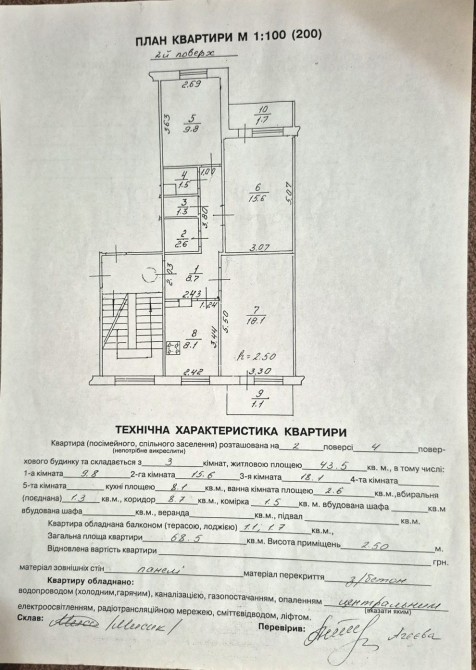 ПЛАН КВАРТИРИ М 1:100 (200)
2й поверх
2.69
3.63
5
9.8
10
1.7
4
1.5
1.00
3
1.3
6
15.6
5.07
3.80
2
2.6
3.07
2.03
1
8.7
2.43
1.24
7
18.1
5.50
8
8.1
3.44
h = 2.50
2.42
3.30
9
1.1
ТЕХНІЧНА ХАРАКТЕРИСТИКА КВАРТИРИ
Квартира (посімейного, спільного заселення) розташована на 2 поверсі 4 повер-
(непотрібне викреслити)
хового будинку та складається з 3 кімнат, житловою площею 43.5 кв. м., в тому числі:
1-а кімната 9.8 2-га кімната 15.6 3-я кімната 18.1 4-та кімната
5-та кімната кухні площею 8.1 кв.м., ванна кімната 2.6 кв.м.,вбиральня
(поєднана) 1.3 кв.м., коридор 8.7 кв.м., комірка 1.5 кв. м. вбудована шафа кв.м
вбудована шафа кв.м., веранда кв.м., підвал кв.м.
Квартира обладнана балконом (терасою, лоджією) 1.1, 1.7 кв.м.,
Загальна площа квартири 68.5 кв.м. Висота приміщень 2.50 м.
Відновлена вартість квартири грн.
матеріал зовнішніх стін панелі матеріал перекриття з/бетон
Квартиру обладнано:
водопроводом (холодним,гарячим), каналізацією, газопостачанням, опаленням центральним
(вказати яким)
електроосвітленням, радіотрансляційною мережею, сміттєвідводом, ліфтом.
Склав: Перевірив: Агеєва